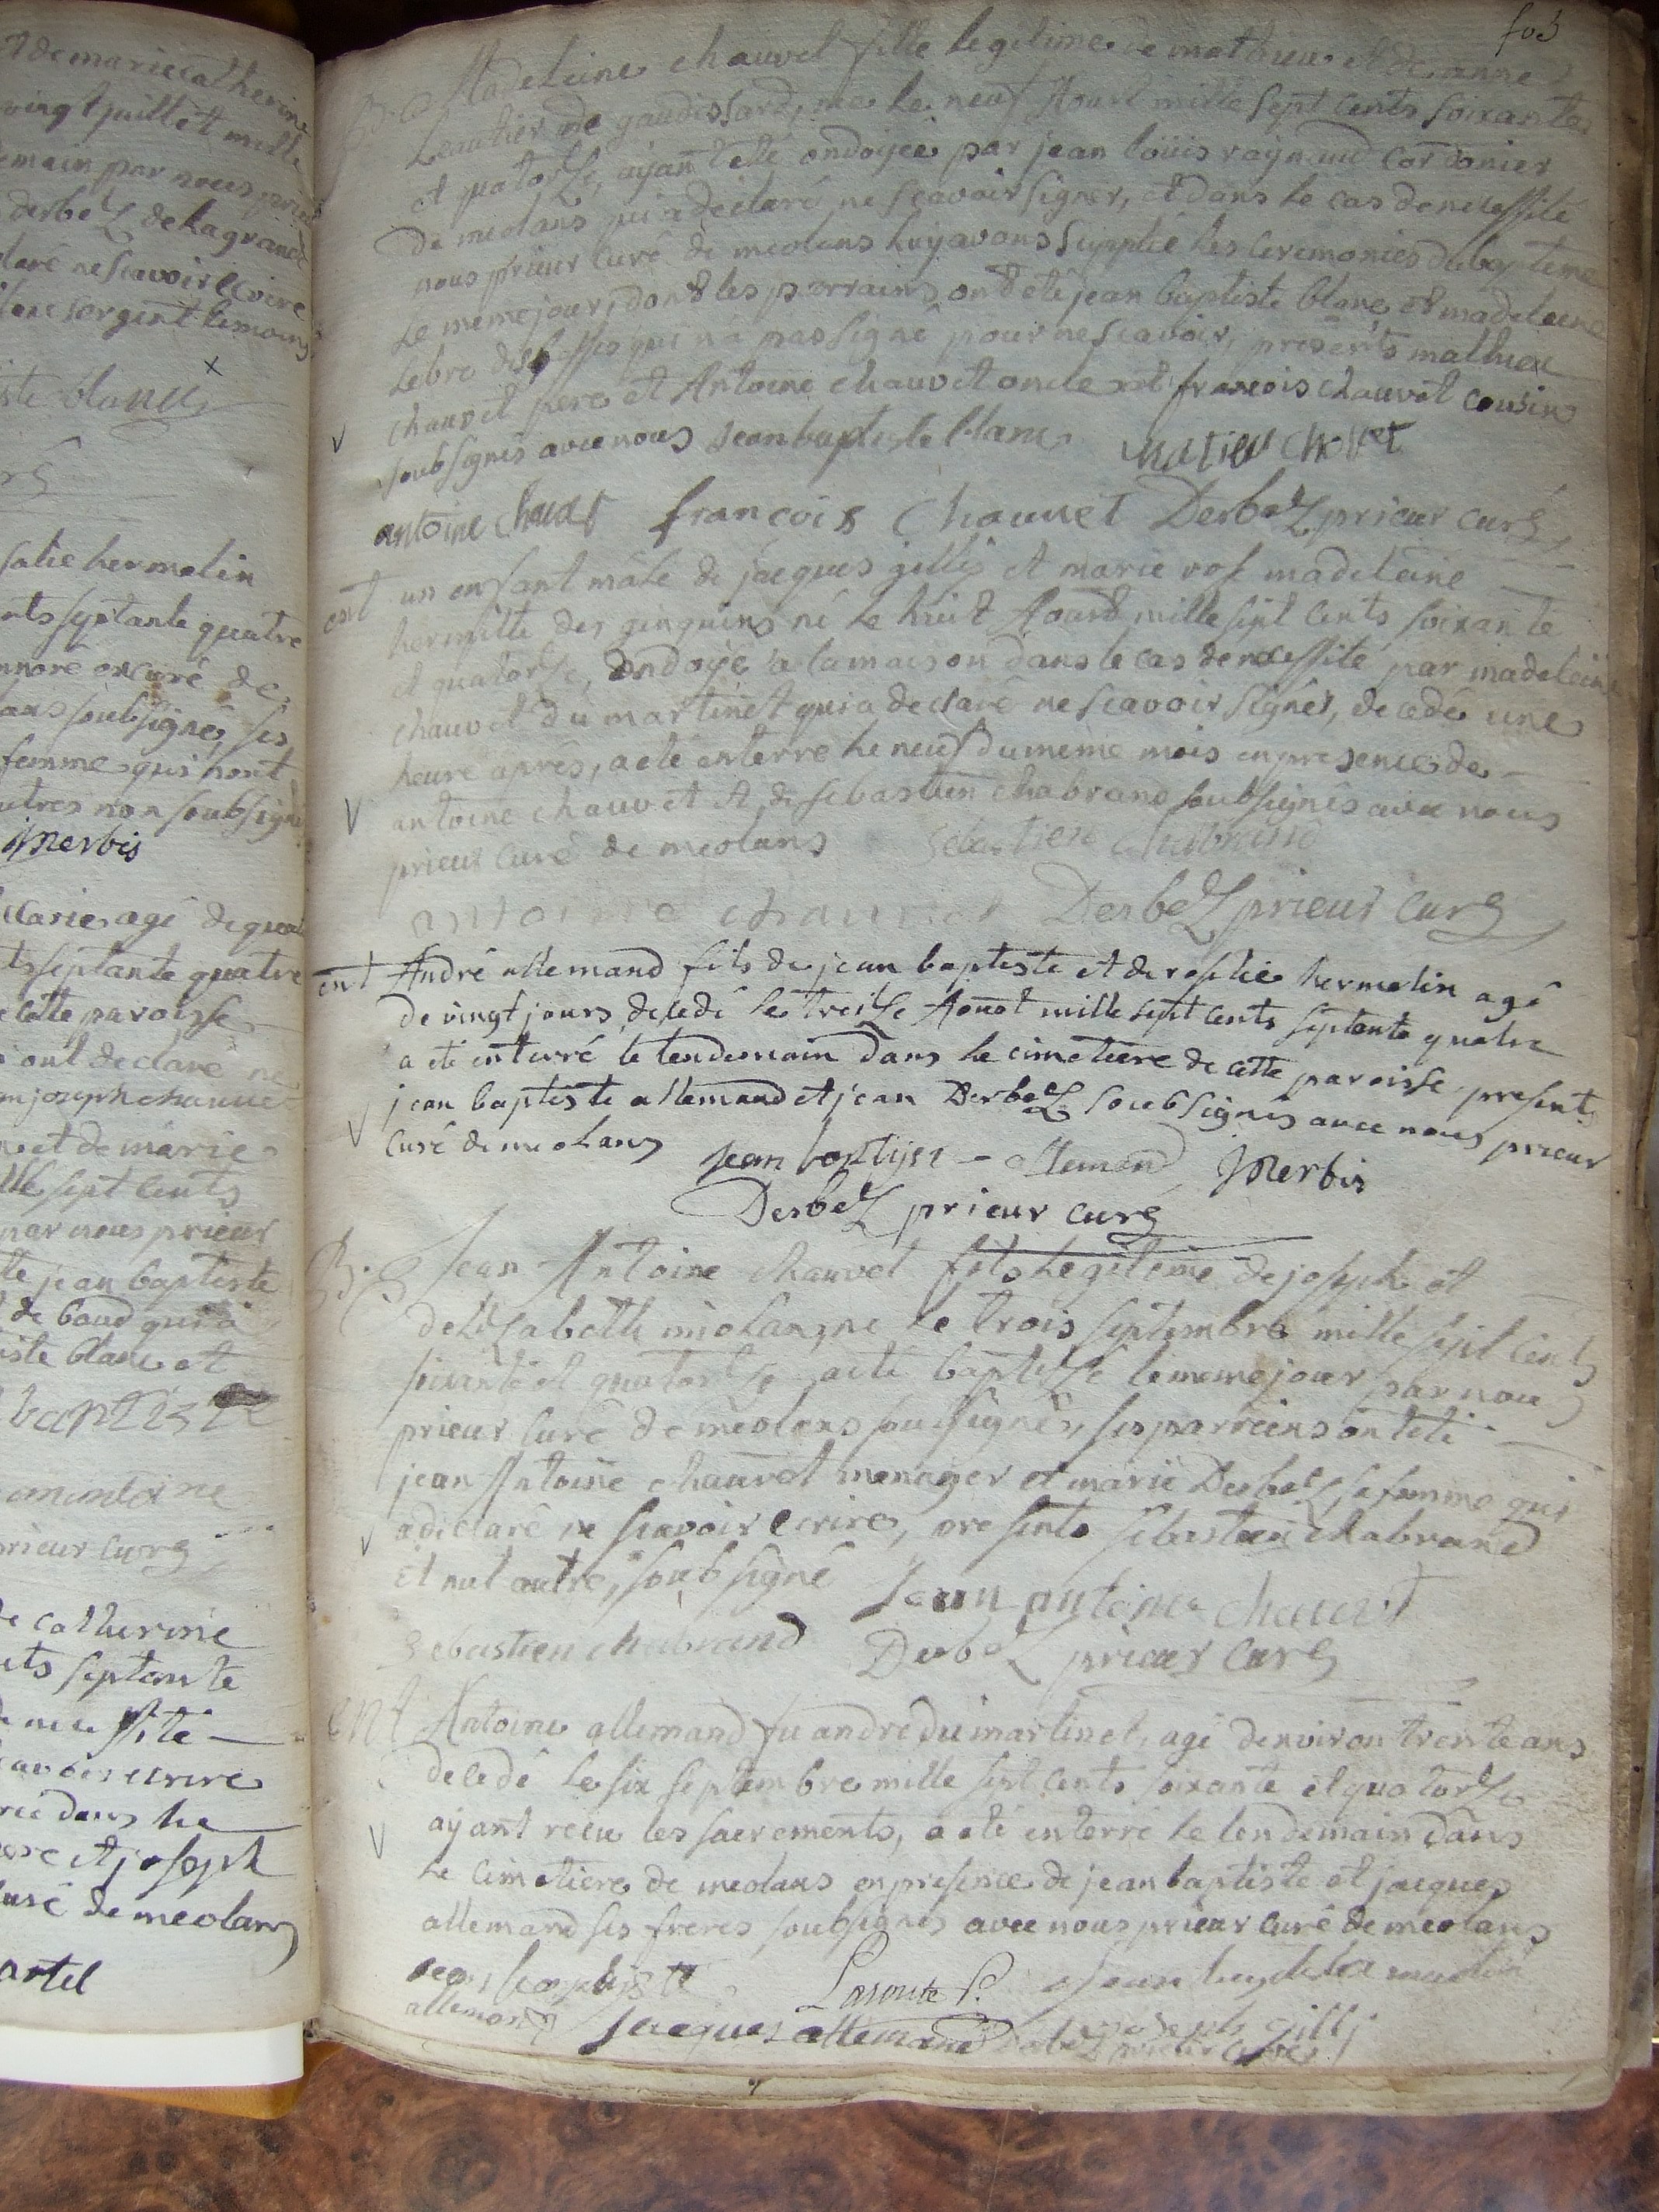 et de marie catherine
vingt juillet mille
lendemain par nous prieur
derbeZ de la grand
declaré ne scavoir ecrire
sergent temoins
iste blanc
salie hermelin
nts septante quatre
honoré curé de
ans soubsignés, ses
femme qui n'ont
autres non soubsigné
JDerbés
Marie agé de quatre
ts septante quatre
cette paroisse
ont declaré ne
jean joseph chauvet
et de marie
mille sept cents
par nous prieur
jean baptiste
de baud qui a
iste blanc et
baptiste
antoine
prieur curé
de catherine
nts septante
de necessité
scavoir ecrire
rée dans le
pere et joseph
curé de meolans
artel
fo3
B.e Madeleine chauvet fille legitime de mathieu et de anne
Leautier de gaudissard, née le neuf Aoust mille sept cents soixante
et quatorZe, ayant eté ondoyée par jean loüis raynaud cordonier
de meolans qui a declaré ne scavoir signer, et dans le cas de necessité
nous prieur curé de meolans luy avons supplée les ceremonies du bapteme
le meme jour, dont les parrains ont eté jean baptiste blanc et madeleine
Lebre qui n'a pas signé pour ne scavoir, presents mathieu
chauvet pere et Antoine chauvet oncle et françois chauvet cousin
soubsignés avec nous jean baptiste blanc matieu chovet
antoine chauvet françois Chauvet DerbeZ prieur curé
ent un enfant mâle de jacques gilly et marie rose madeleine
hermitte des ginquins né le huit Aoust mille sept cents soixante
et quatorZe, ondoyé a la maison dans le cas de necessité par madeleine
chauvet du martinet qui a declaré ne scavoir signer, decedé une
heure aprés, a eté enterré le neuf du meme mois en presence de
antoine chauvet et de sebastien chabrand soubsignés avec nous
prieur curé de meolans Sebastien chabrand
antoine chauvet DerbeZ prieur curé
ent André allemand fils de jean baptiste et de rosalie hermelin agé
de vingt jours decedé le treiZe Aoust mille sept cents septante quatre
a eté enterré le lendemain dans le cimetiere de cette paroisse presents
jean baptiste allemand et jean DerbeZ soubsignés avec nous prieur
curé de meolans jean baptiste allemand JDerbés
DerbeZ prieur curé
B.e Jean Antoine chauvet fils legitime de joseph et
d'eliZabeth meolans, né le trois septembre mille sept cents
soixante et quatorZe a eté baptisé le meme jour par nous
prieur curé de meolans soussigné, ses parreins ont eté
jean Antoine chauvet menager et marie DerbeZ sa femme qui
a declaré ne scavoir ecrire, presents sebastien chabrand
et nul autre, soubsigné Jean antoine chauvet
Sebastien chabrand DerbeZ prieur curé
ent Antoine allemand fu andré du martinet, agé d'environ trente ans
decedé le six septembre mille sept cents soixante et quatorZe
ayant recu les sacrements, a eté enterré le lendemain dans
le cimetiere de meolans en presence de jean baptiste et jacques
allemand ses freres soubsignés avec nous prieur curé de meolans
jean baptiste
allemand Jacques allemand joseph gilly
DerbeZ prieur curé